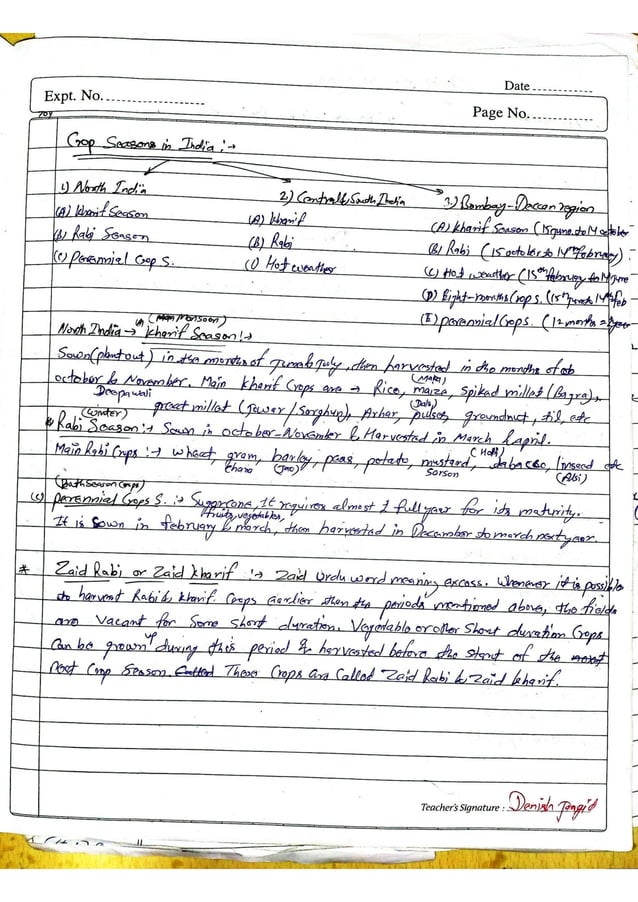 Date
Expt. No.
Page No.
Crop Seasons in India :→
1) North India 2) Central & South India 3) Bombay-Deccan region
(A) Kharif Season (A) Kharif (A) Kharif Season (15 june to 14 october
(B) Rabi Season (B) Rabi (B) Rabi (15 october to 14th february)
(C) Perennial Crop S. (C) Hot weather (C) Hot weather (15th february to 14 june
(D) Eight-months Crops. (15th june to 14th feb
(E) perennial Crops. (12 months = 1 year
(Monsoon)
North India → Kharif Season :→
Sown (plant out) in the months of June & July, then harvested in the months of
october & November. Main Kharif Crops are → Rice, maize, Spikad millat (Bajra),
Deepawali (Maka)
great millat (Jawar/Sorghup), Arhar, pulses, groundnut, til, etc
(winter) (Dals)
Rabi Season :→ Sown in october-November & Harvested in March & april.
Main Rabi Crops :→ wheat, gram, barley, peas, potato, mustard, tabacco, linseed etc
chana (Jao) Sarson (Alsi)
(Both Season Crops)
(C) Perennial Crops S. :→ Sugarcane, It requires almost 1 full year for its maturity.
fruits, vegetables,
It is sown in february & march, then harvested in December to march next year.
* Zaid Rabi or Zaid Kharif :→ Zaid Urdu word meaning excess. Whenever it is possible
to harvest Rabi & Kharif Crops earlier than the periods mentioned above, the fields
are vacant for some short duration. Vegetable or other short duration Crops
can be grown up during this period & harvested before the start of the
next Crop Season. These Crops are Called Zaid Rabi & Zaid Kharif.
Teacher's Signature : Danish Jangid